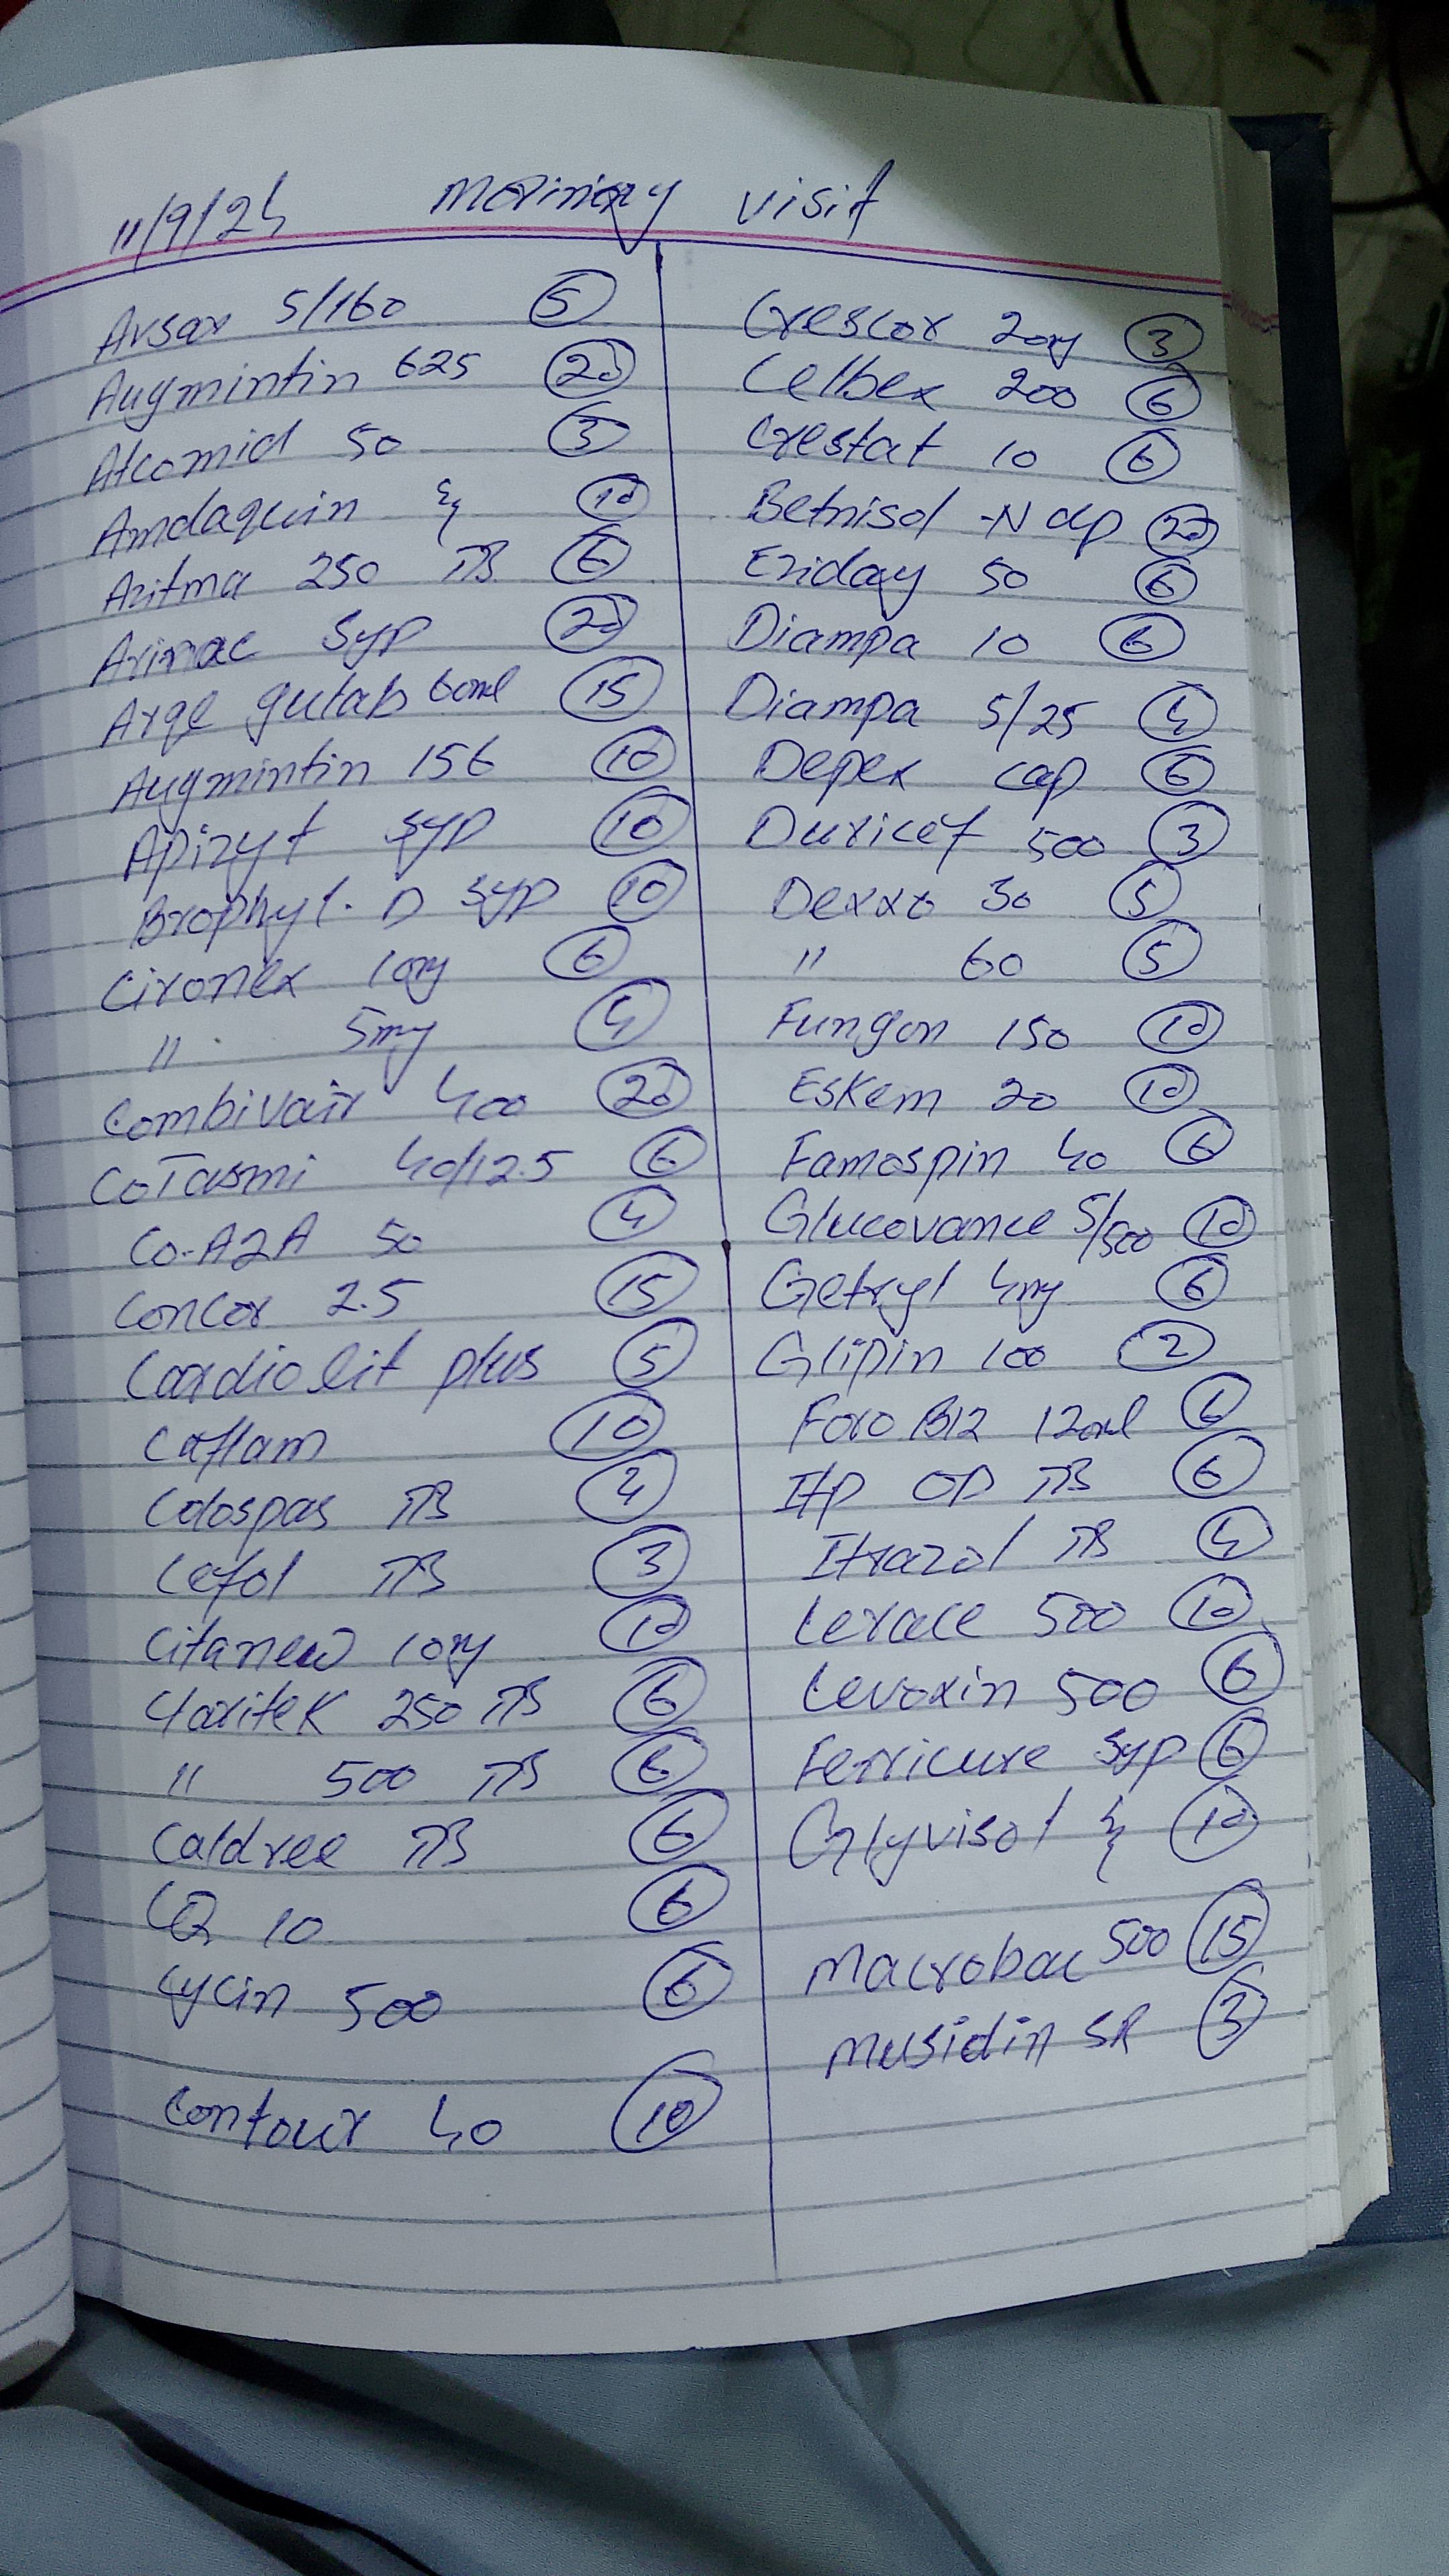 11/9/24 Morining visit
Avsar 5/160 5
Augmintin 625 20
Atcomid 50 3
Amdaquin 10
Azitma 250 TB 6
Arinac Syp 20
Arqe gulab 60ml 15
Augmintin 156 10
Apizyt syp 10
Brophyl. D syp 10
Cironex 10mg 6
" 5mg 4
Combivair 400 20
CoTasmi 40/12.5 6
Co-A2A 50 4
Concor 2.5 15
Cardiolit plus 5
Caflam 10
Colospas TB
Cefol TB 3
Citanew 10mg 10
Claritek 250 TB 6
" 500 TB 6
Caldree TB 6
CQ 10 6
Cycin 500 6
Contour 40 10
Crescor 20mg 3
Celbex 200 6
Crestat 10 6
Betnisol -N dp 20
Eziday 50 6
Diampa 10 6
Diampa 5/25 4
Depex cap 6
Duricef 500 3
Dexxo 30 5
" 60 5
Fungon 150 10
Eskem 20 10
Famospin 40 6
Glucovance 5/500 10
Getryl 4mg 6
Glipin 100 2
Foro B12 120ml 6
Itp OD TB 6
Itrazol TB 4
Lerace 500 10
Levoxin 500 6
Ferricure syp 6
Glyvisol 10
Macrobac 500 15
Musidin SR 3